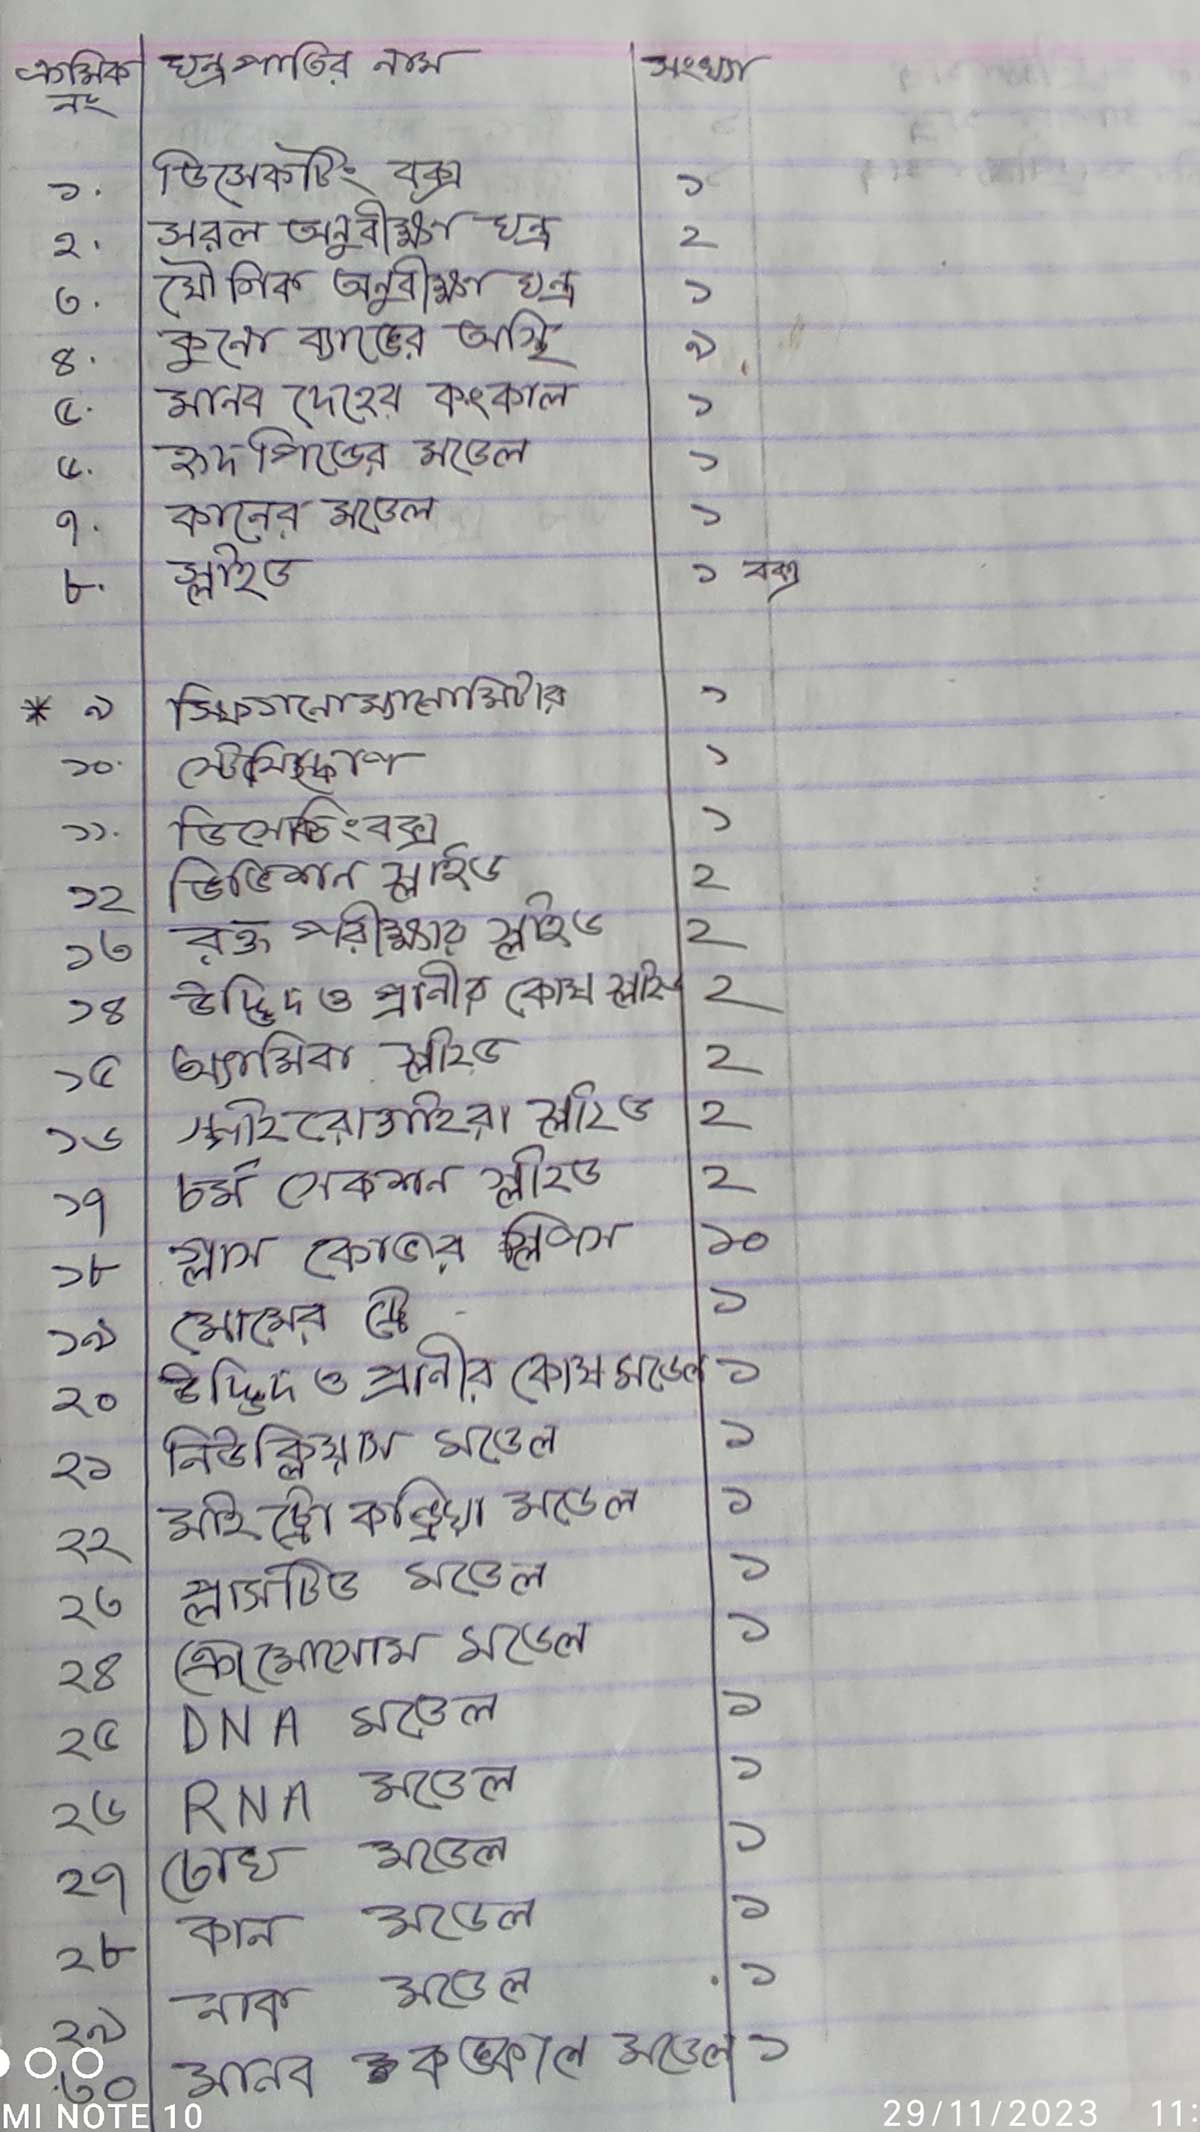 ক্রমিক নং যন্ত্রপাতির নাম সংখ্যা
১. ডিসেকটিং বক্স ১
২. সরল অনুবীক্ষণ যন্ত্র 2
৩. যৌগিক অনুবীক্ষণ যন্ত্র ১
৪. কুনো ব্যাঙের অস্থি ৯
৫. মানব দেহের কংকাল ১
৬. হৃদপিন্ডের মডেল ১
৭. কানের মডেল ১
৮. স্লাইড ১ বক্স
* ৯ স্ফিগনোম্যানোমিটার ১
১০. স্টেথিস্কোপ ১
১১. ডিসেক্টিংবক্স ১
১2 ডিভিশন স্লাইড 2
১৩ রক্ত পরীক্ষার স্লাইড 2
১৪ উদ্ভিদ ও প্রানীর কোষ স্লাইড 2
১৫ অ্যামিবা স্লাইড 2
১৬ স্পাইরোগাইরা স্লাইড 2
১৭ চর্ম সেকশন স্লাইড 2
১৮ গ্লাস কোভার স্লিপস ১০
১৯ মোমের ট্রে ১
২০ উদ্ভিদ ও প্রানীর কোষ মডেল ১
২১ নিউক্লিয়াস মডেল ১
২২ মাইট্রো কন্ড্রিয়া মডেল ১
২৩ প্লাসটিড মডেল ১
২৪ ক্রোমোসোম মডেল ১
২৫ DNA মডেল ১
২৬ RNA মডেল ১
২৭ চোখ মডেল ১
২৮ কান মডেল ১
২৯ নাক মডেল ১
৩০ মানব কঙ্কাল মডেল ১
MI NOTE 10
29/11/2023 11: